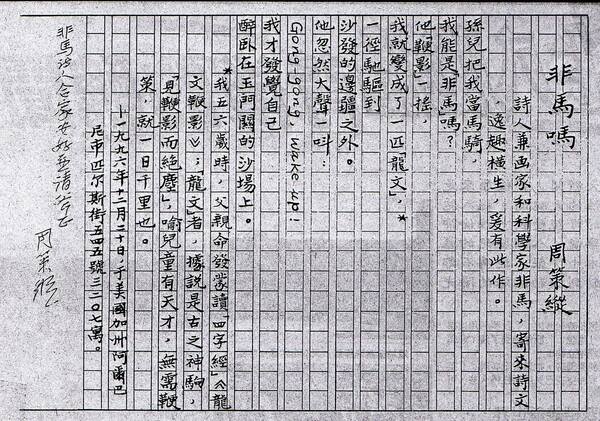 非馬嗎　周策縱
詩人兼画家和科學家非馬，寄來詩文
，逸趣橫生，爰有此作。
孫兒把我當馬騎，
我能是「非馬」嗎？
他「鞭影」一搖，
我就變成了一匹龍文，*
一徑馳驅到
沙發的邊疆之外。
他忽然大聲一叫：
Gong gong, wake up!
我才發覺自己
醉卧在玉門關的沙場上。
*我五六歲時，父親命發蒙讀「四字經」《龍
文鞭影》；龍文」者，據說是古之神駒，
「見鞭影而絕塵」，喻兒童有天才，無需鞭
策，就一日千里也。
—一九九六年十二月二十日，于美國加州阿爾巴
尼市匹尔斯街五四五號三三〇七寓。
非馬詩人合家安好並請
周策縱